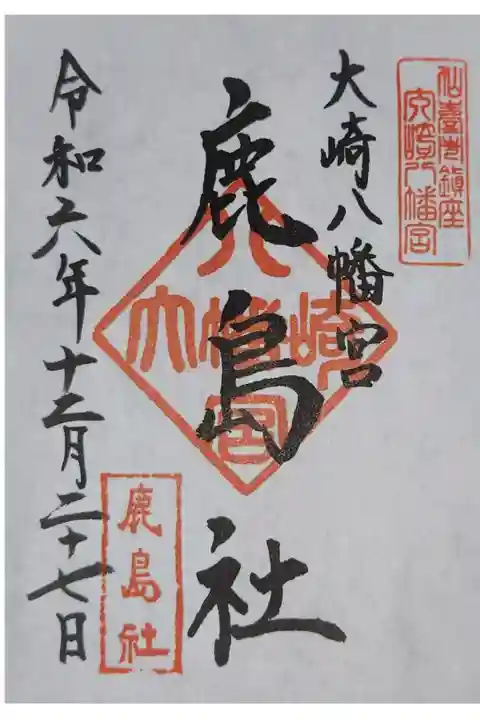 仙臺市鎮座
大崎八幡宮
大崎八幡宮
鹿島社
八幡宮
大 崎
鹿島社
令和六年十二月二十七日